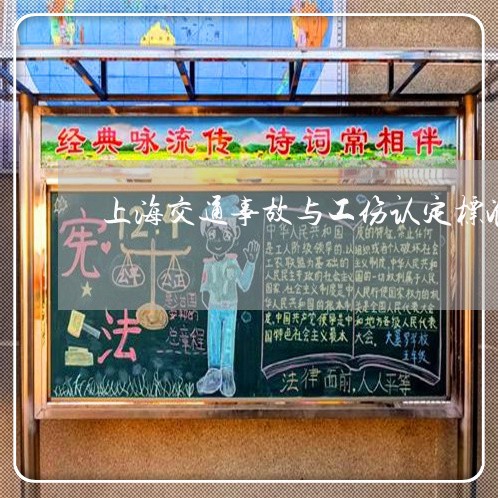 经典咏流传 诗词常相伴
上海交通事故与工伤认定标
宪
法
公平
公正
总章程
中华人民共和国
是工人阶级领导的、以
工农联盟为基础的
人民民主专政的社会主义
国家,社会主义制度是中
华人民共和国的根本制
度,中国共产党领导是中
国特色社会主义最本
质的特征,禁止任何
组织或者个人破坏社会
主义制度,中华人民共和
国的一切权利属于人民,
人民行使国家权力的机
关是全国人民代表大会
和地方各级人民代表
大会。
五年级
法律面前,人人平等